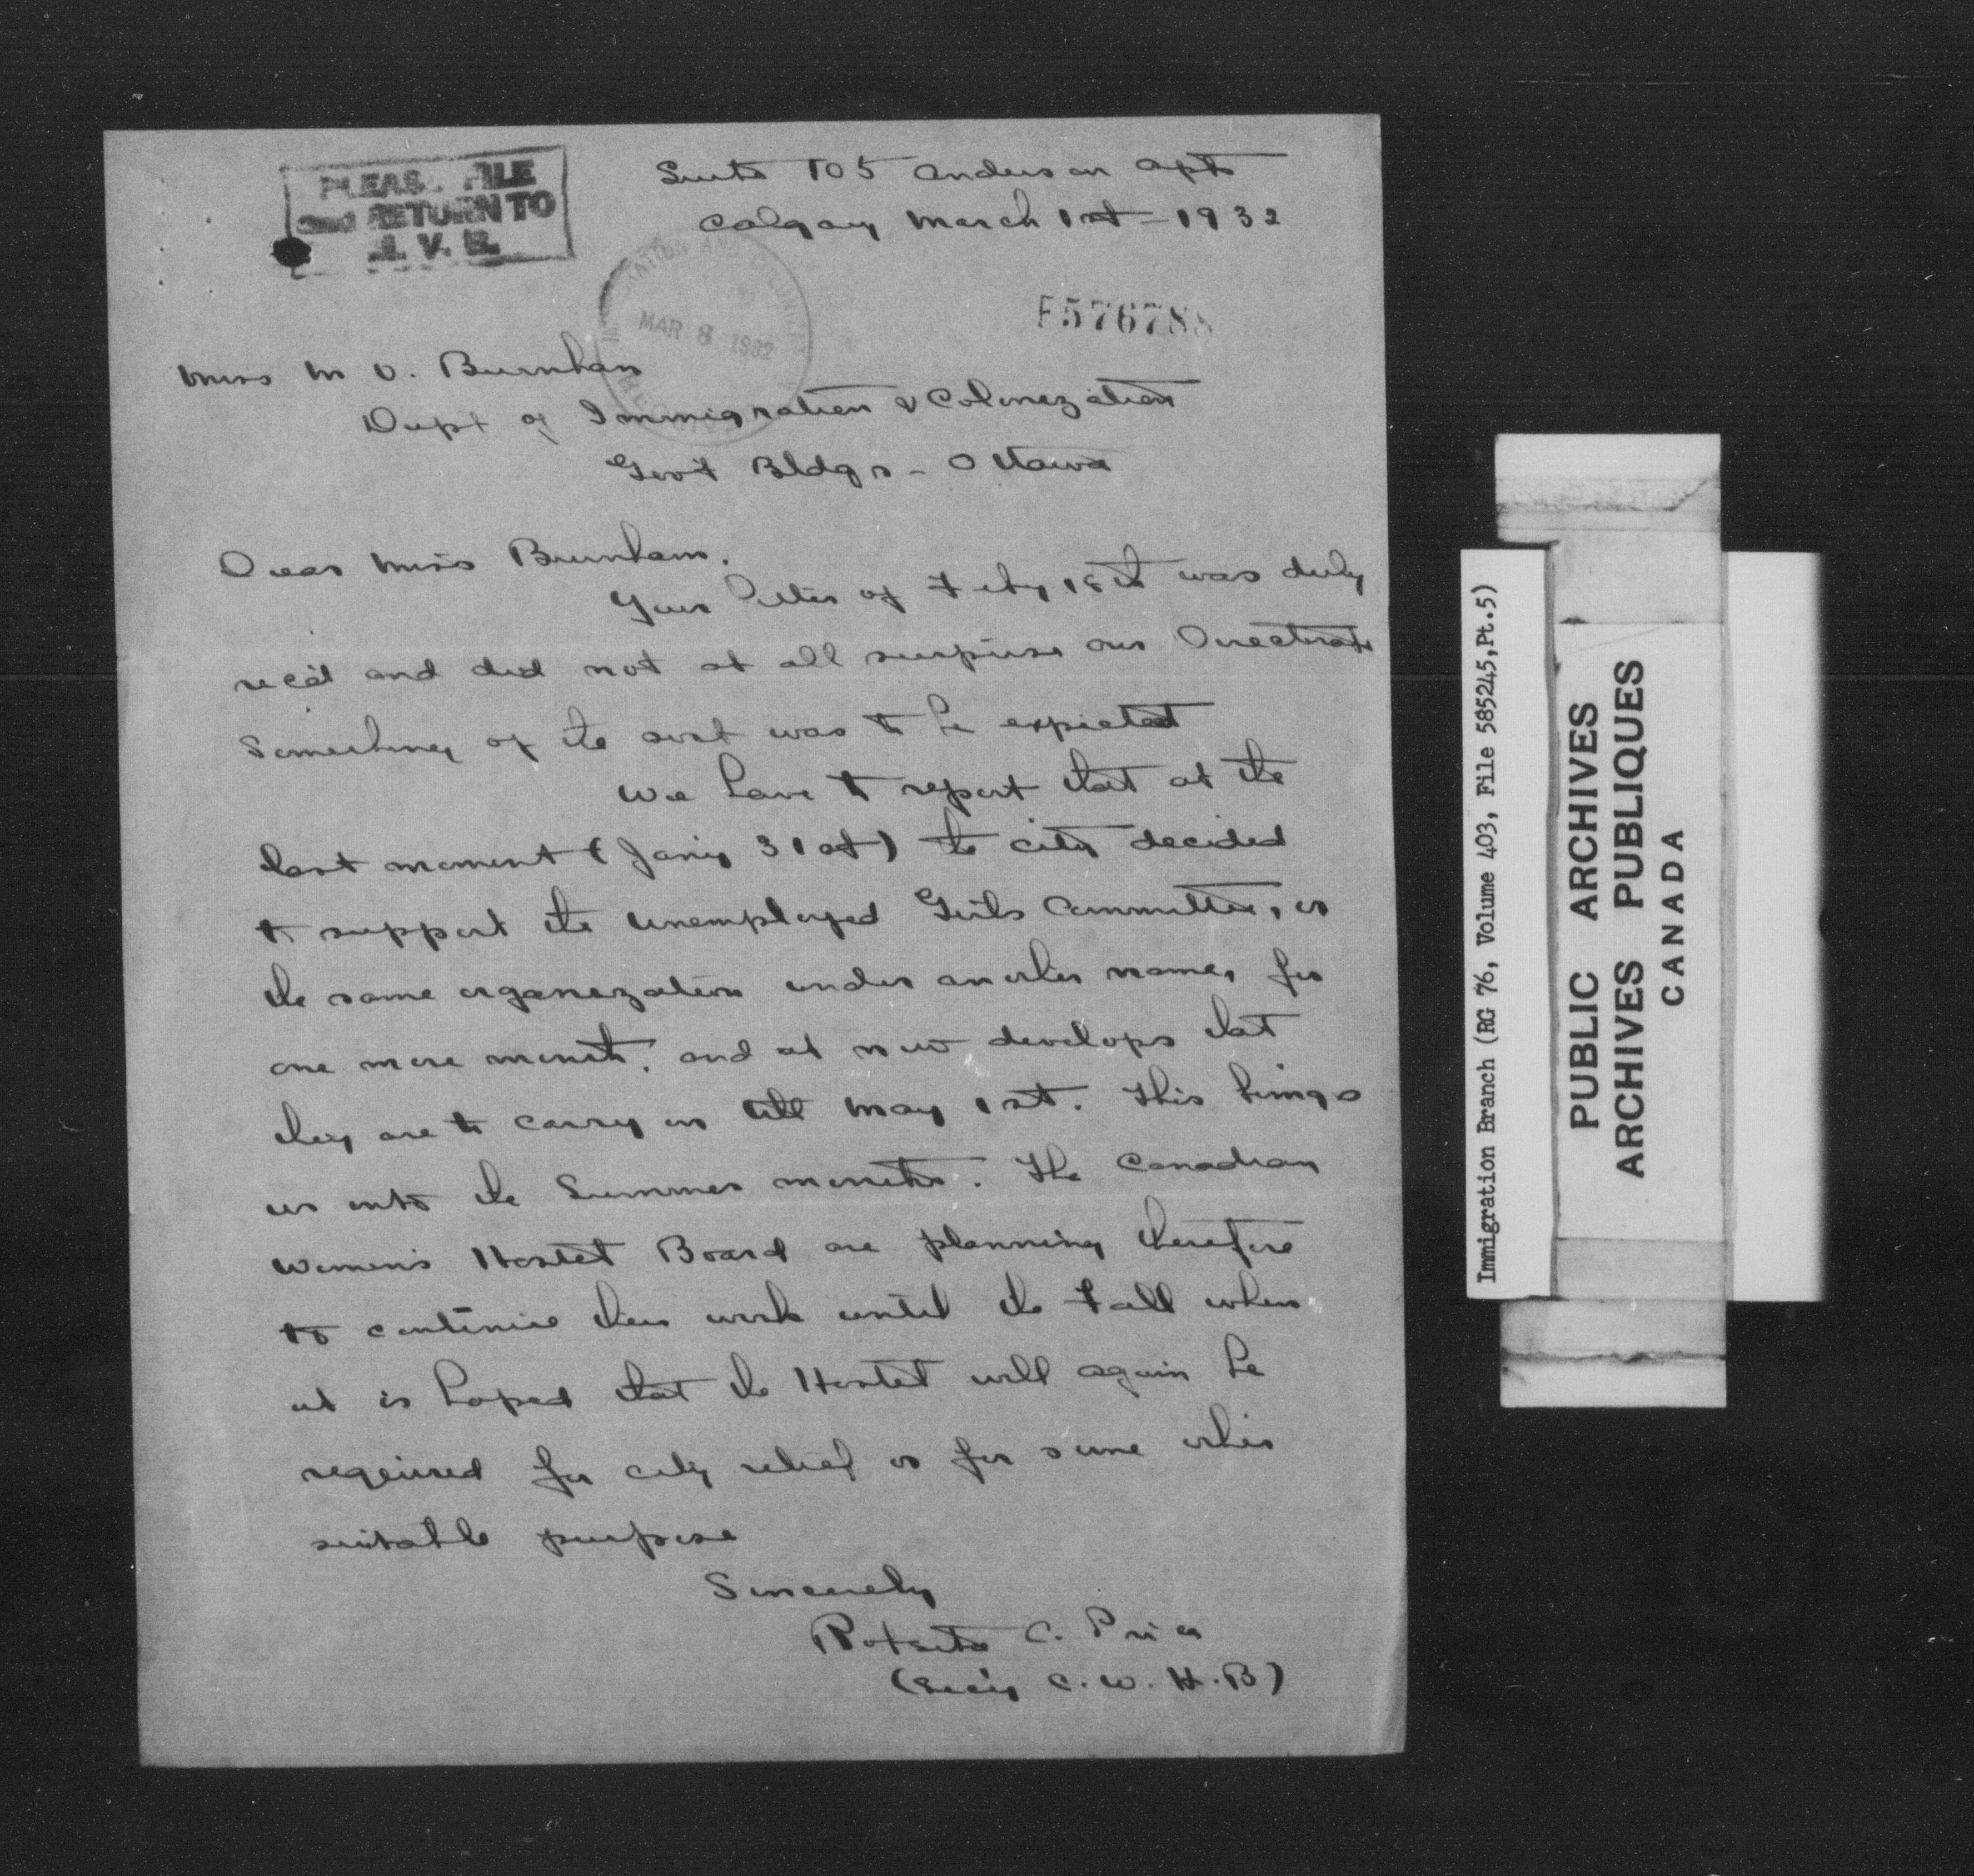 PLEASE FILE
and RETURN TO
M. V. B.
Suite 105 Anderson Apts
Calgary March 1st - 1932
MAR 8 1932
F576788
Miss M V. Burnham
Dept of Immigration & Colonezation
Gov't Bldgs - Ottawa
Dear Miss Burnham.
Your letter of Feby 18th was duly
rec'd and did not at all surprise our Directorate
Something of the sort was to be expected
We have to report that at the
last moment (Jany 31st) the city decided
to support the Unemployed Girls Committee, or
the same organezation under another name, for
one more month, and it now develops that
they are to carry on till May 1st. This brings
us into the Summer months. The Canadian
Women's Hostel Board are planning therefore
to continue their work until the Fall when
it is hoped that the Hostel will again be
required for city relief or for some other
suitable purpose
Sincerely
Roberta C. Price
(Sec'y C. W. H. B)
Immigration Branch (RG 76, Volume 403, File 585245,Pt.5)
PUBLIC ARCHIVES
ARCHIVES PUBLIQUES
CANADA